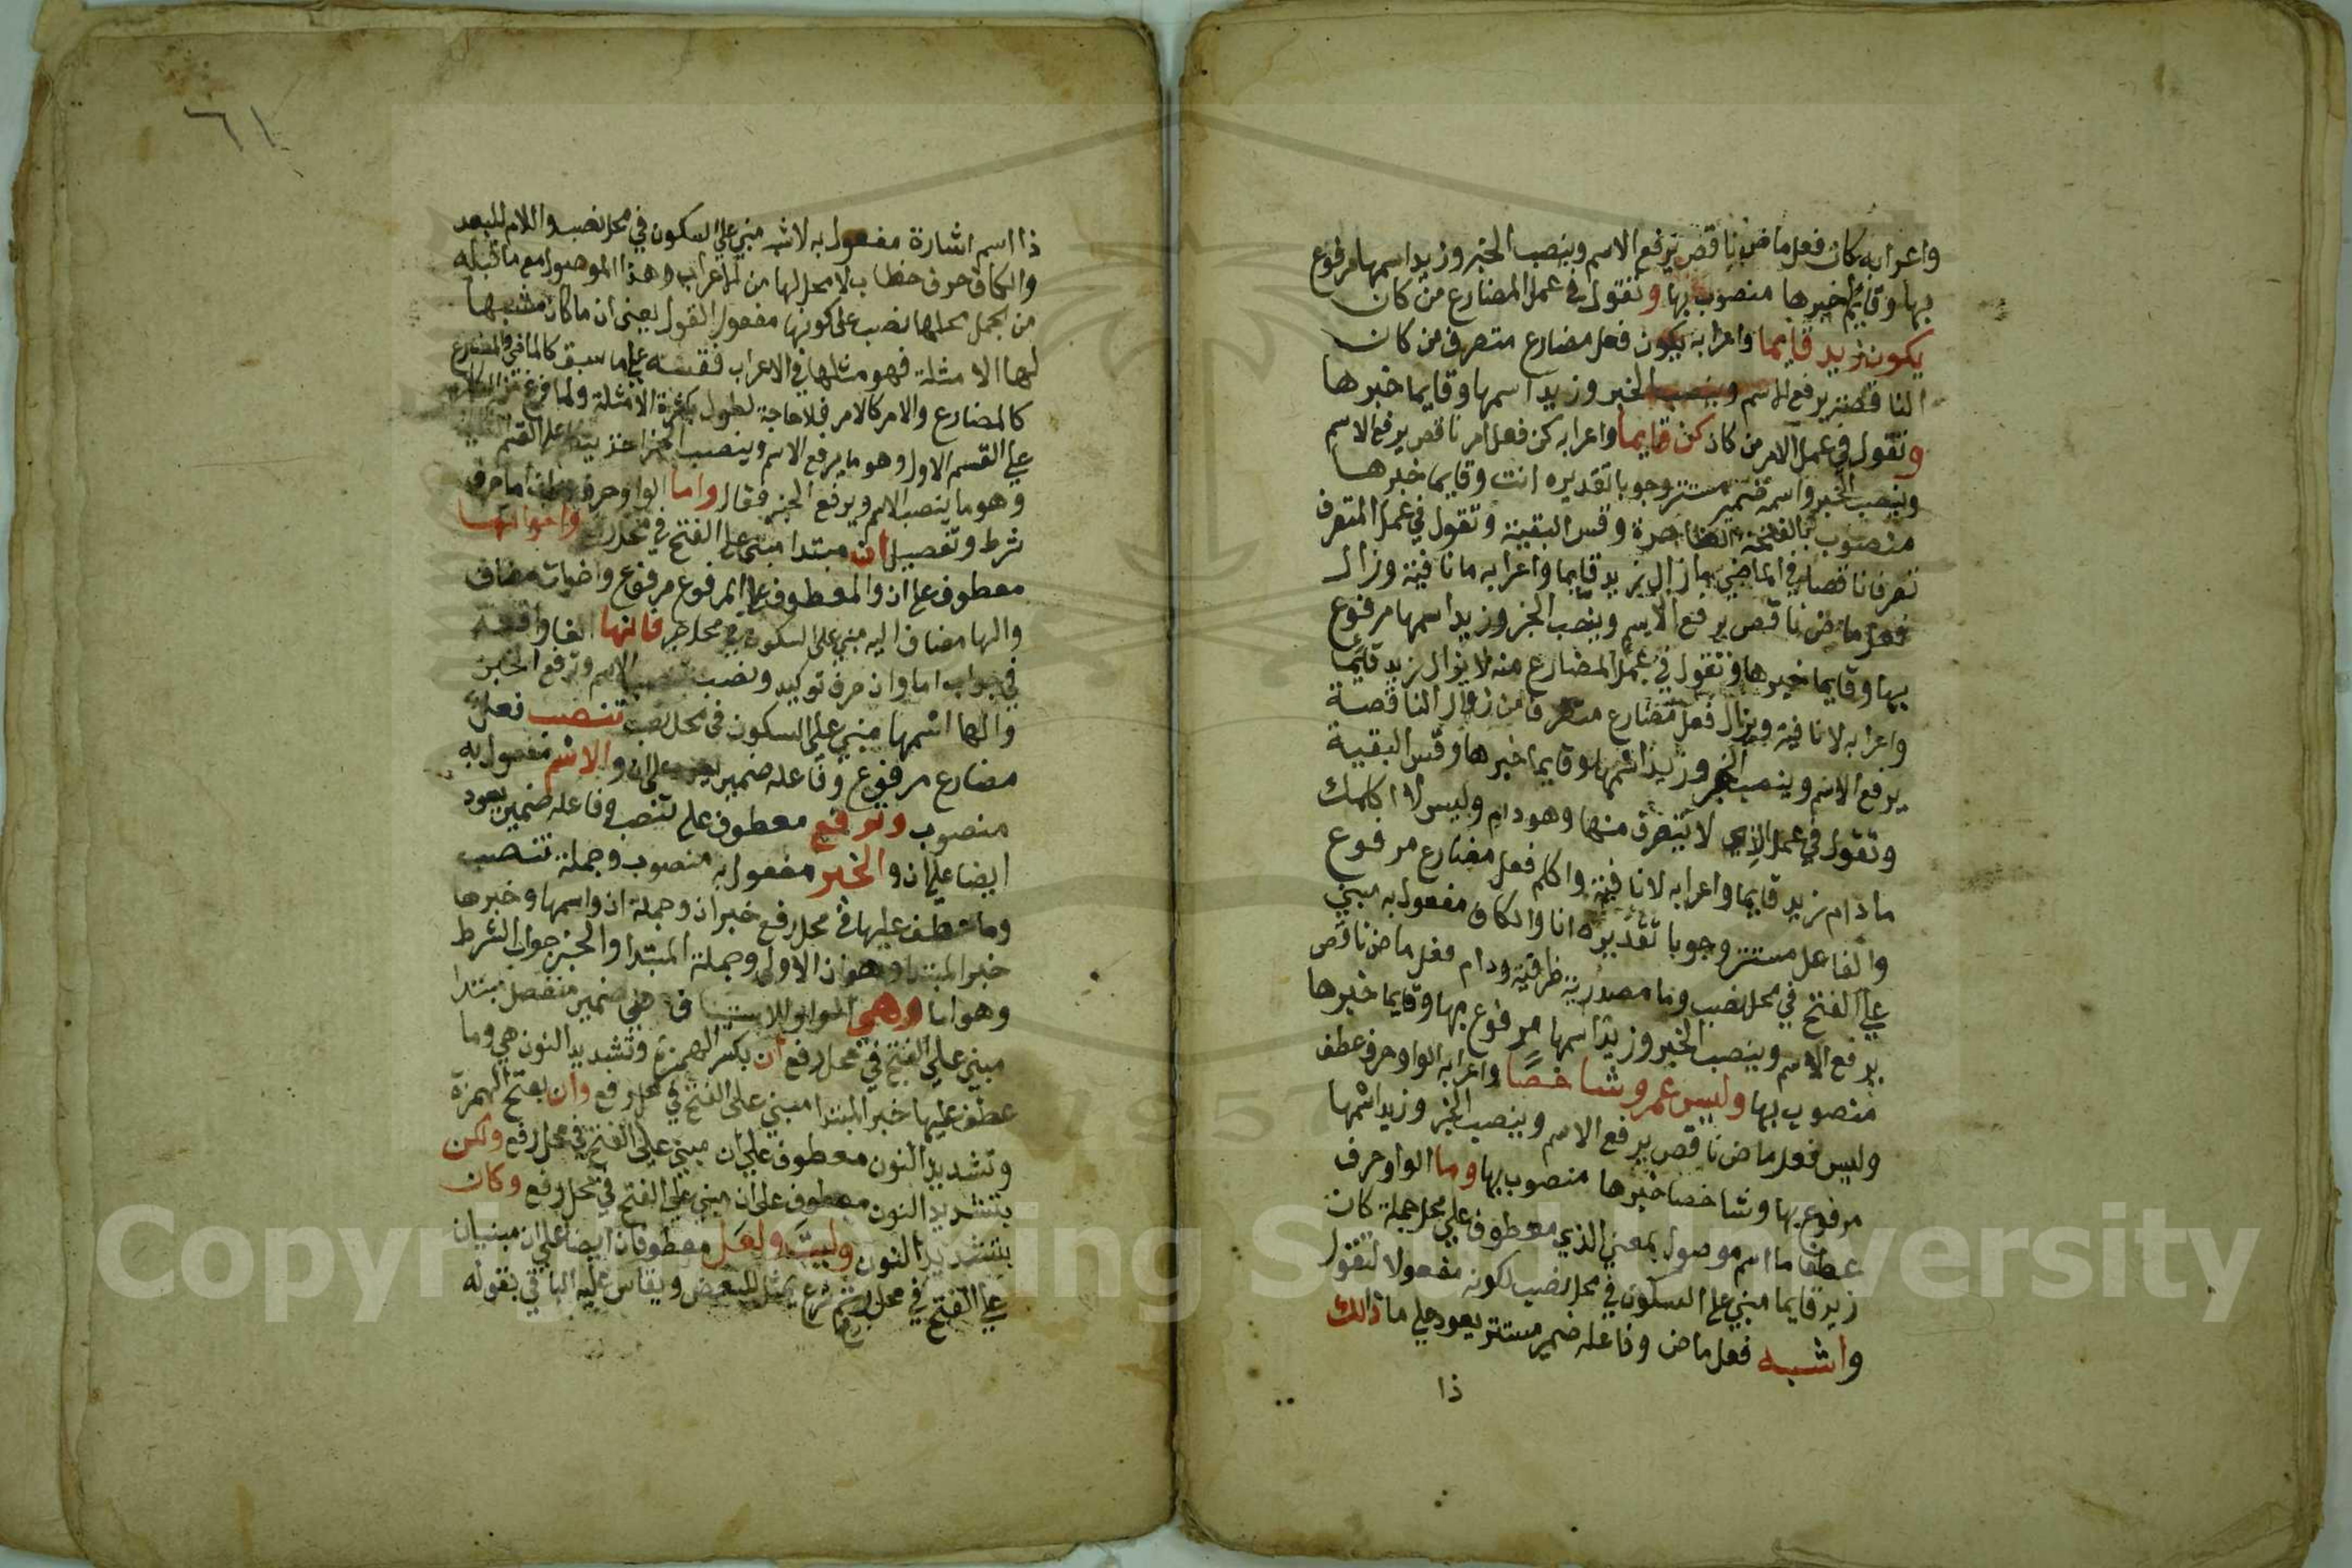 واعرابه كان فعل ماض ناقص يرفع الاسم وينصب الخبر وزيد اسمها مرفوع
بها وقايما خبرها منصوب بها وتقول في عمل المضارع من كان
يكون زيد قايما واعرابه يكون فعل مضارع متصرف من كان
الناقصة يرفع الاسم وينصب الخبر وزيد اسمها وقايما خبرها
وتقول في عمل الامر من كان كن قايما واعرابه كن فعل امر ناقص يرفع الاسم
وينصب الخبر واسمه ضمير مستتر وجوبا تقديره انت وقايما خبرها
منصوب بالفتحة الظاهرة وقس البقية وتقول في عمل المتصرف
تصرفا ناقصا في الماضي ما زال زيد قايما واعرابه ما نافية وزال
فعل ماض ناقص يرفع الاسم وينصب الخبر وزيد اسمها مرفوع
بها وقايما خبرها وتقول في عمل المضارع منه لا يزال زيد قايما
واعرابه لا نافية ويزال فعل مضارع متصرفا من زال الناقصة
يرفع الاسم وينصب الخبر وزيد اسمها وقايما خبرها وقس البقية
وتقول في عمل الذي لا يتصرف منها وهو دام وليس لا اكلمك
ما دام زيد قايما واعرابه لا نافية واكلم فعل مضارع مرفوع
والفاعل مستتر وجوبا تقديره انا والكاف مفعول به مبني
علي الفتح في محل نصب وما مصدرية ظرفية ودام فعل ماض ناقص
يرفع الاسم وينصب الخبر وزيد اسمها مرفوع بها وقايما خبرها
منصوب بها وليس عمرو شاخصا واعرابه الواو حرف عطف
وليس فعل ماض ناقص يرفع الاسم وينصب الخبر وزيد اسمها
مرفوع بها وشاخصا خبرها منصوب بها وما الواو حرف
عطف ما اسم موصول بمعني الذي معطوف علي محل جملة كان
زيد قايما مبني علي السكون في محل نصب لكونه مفعولا لتقول
واشبه فعل ماض وفاعله ضمير مستتر يعود علي ما ذالك
ذا
٦١
ذا اسم اشارة مفعول به لاشبه مبني علي السكون في محل نصب واللام للبعد
والكاف حرف خطاب لا محل لها من الاعراب وهذا الموصول مع ما قبله
من الجمل محلها نصب على كونها مفعول القول يعني ان ما كان مشبها
لهذا الامثلة فهو مثلها في الاعراب فقسه علي ما سبق كالماضي والمضارع
كالمضارع والامر كالامر فلا حاجة لطول بكثرة الامثلة ولما فرغ من الكلام
علي القسم الاول وهو ما يرفع الاسم وينصب الخبر اخذ يتكلم على القسم
وهو ما ينصب الاسم ويرفع الخبر فقال واما الواو حرف اما حرف
شرط وتفصيل ان مبتدا مبني علي الفتح في محل رفع واخواتها
معطوف علي ان والمعطوف علي المرفوع مرفوع واخوات مضاف
والها مضاف اليه مبني علي السكون في محل جر فانها الفا واقعة
في جواب اما وان حرف توكيد ونصب تنصب الاسم وترفع الخبر
والها اسمها مبني على السكون في محل نصب تنصب فعل
مضارع مرفوع وفاعله ضمير يعود على ان والاسم مفعول به
منصوب وترفع معطوف على تنصب وفاعله ضمير يعود
ايضا علي ان والخبر مفعول به منصوب وجملة تنصب
وما عطف عليها في محل رفع خبر ان وجملة ان واسمها وخبرها
خبر المبتدا وهو ان الاولى وجملة المبتدا والخبر جواب الشرط
وهو اما وهي الواو للاستيناف هي ضمير منفصل مبتدا
مبني علي الفتح في محل رفع ان بكسر الهمزة وتشديد النون هي وما
عطف عليها خبر المبتدا مبني على الفتح في محل رفع وان بفتح الهمزة
وتشديد النون معطوف علي ان مبني علي الفتح في محل رفع ولكن
بتشديد النون معطوف على ان مبني علي الفتح في محل رفع وكان
بتشديد النون وليت ولعل معطوفان ايضا علي ان مبنيان
علي الفتح في محل رفع ثم شرع يمثل للبعض ويقاس عليه الباقي بقوله
Copyright King Saud University
1957